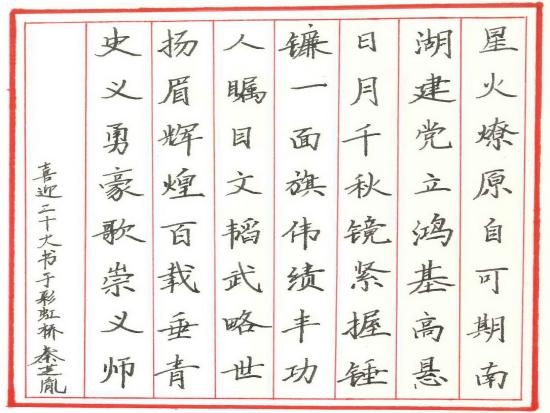 星火燎原自可期南
湖建党立鸿基高悬
日月千秋镜紧握锤
镰一面旗伟绩丰功
人瞩目文韬武略世
扬眉辉煌百载垂青
史义勇豪歌崇义师
喜迎二十大书于彩虹桥秦芝胤